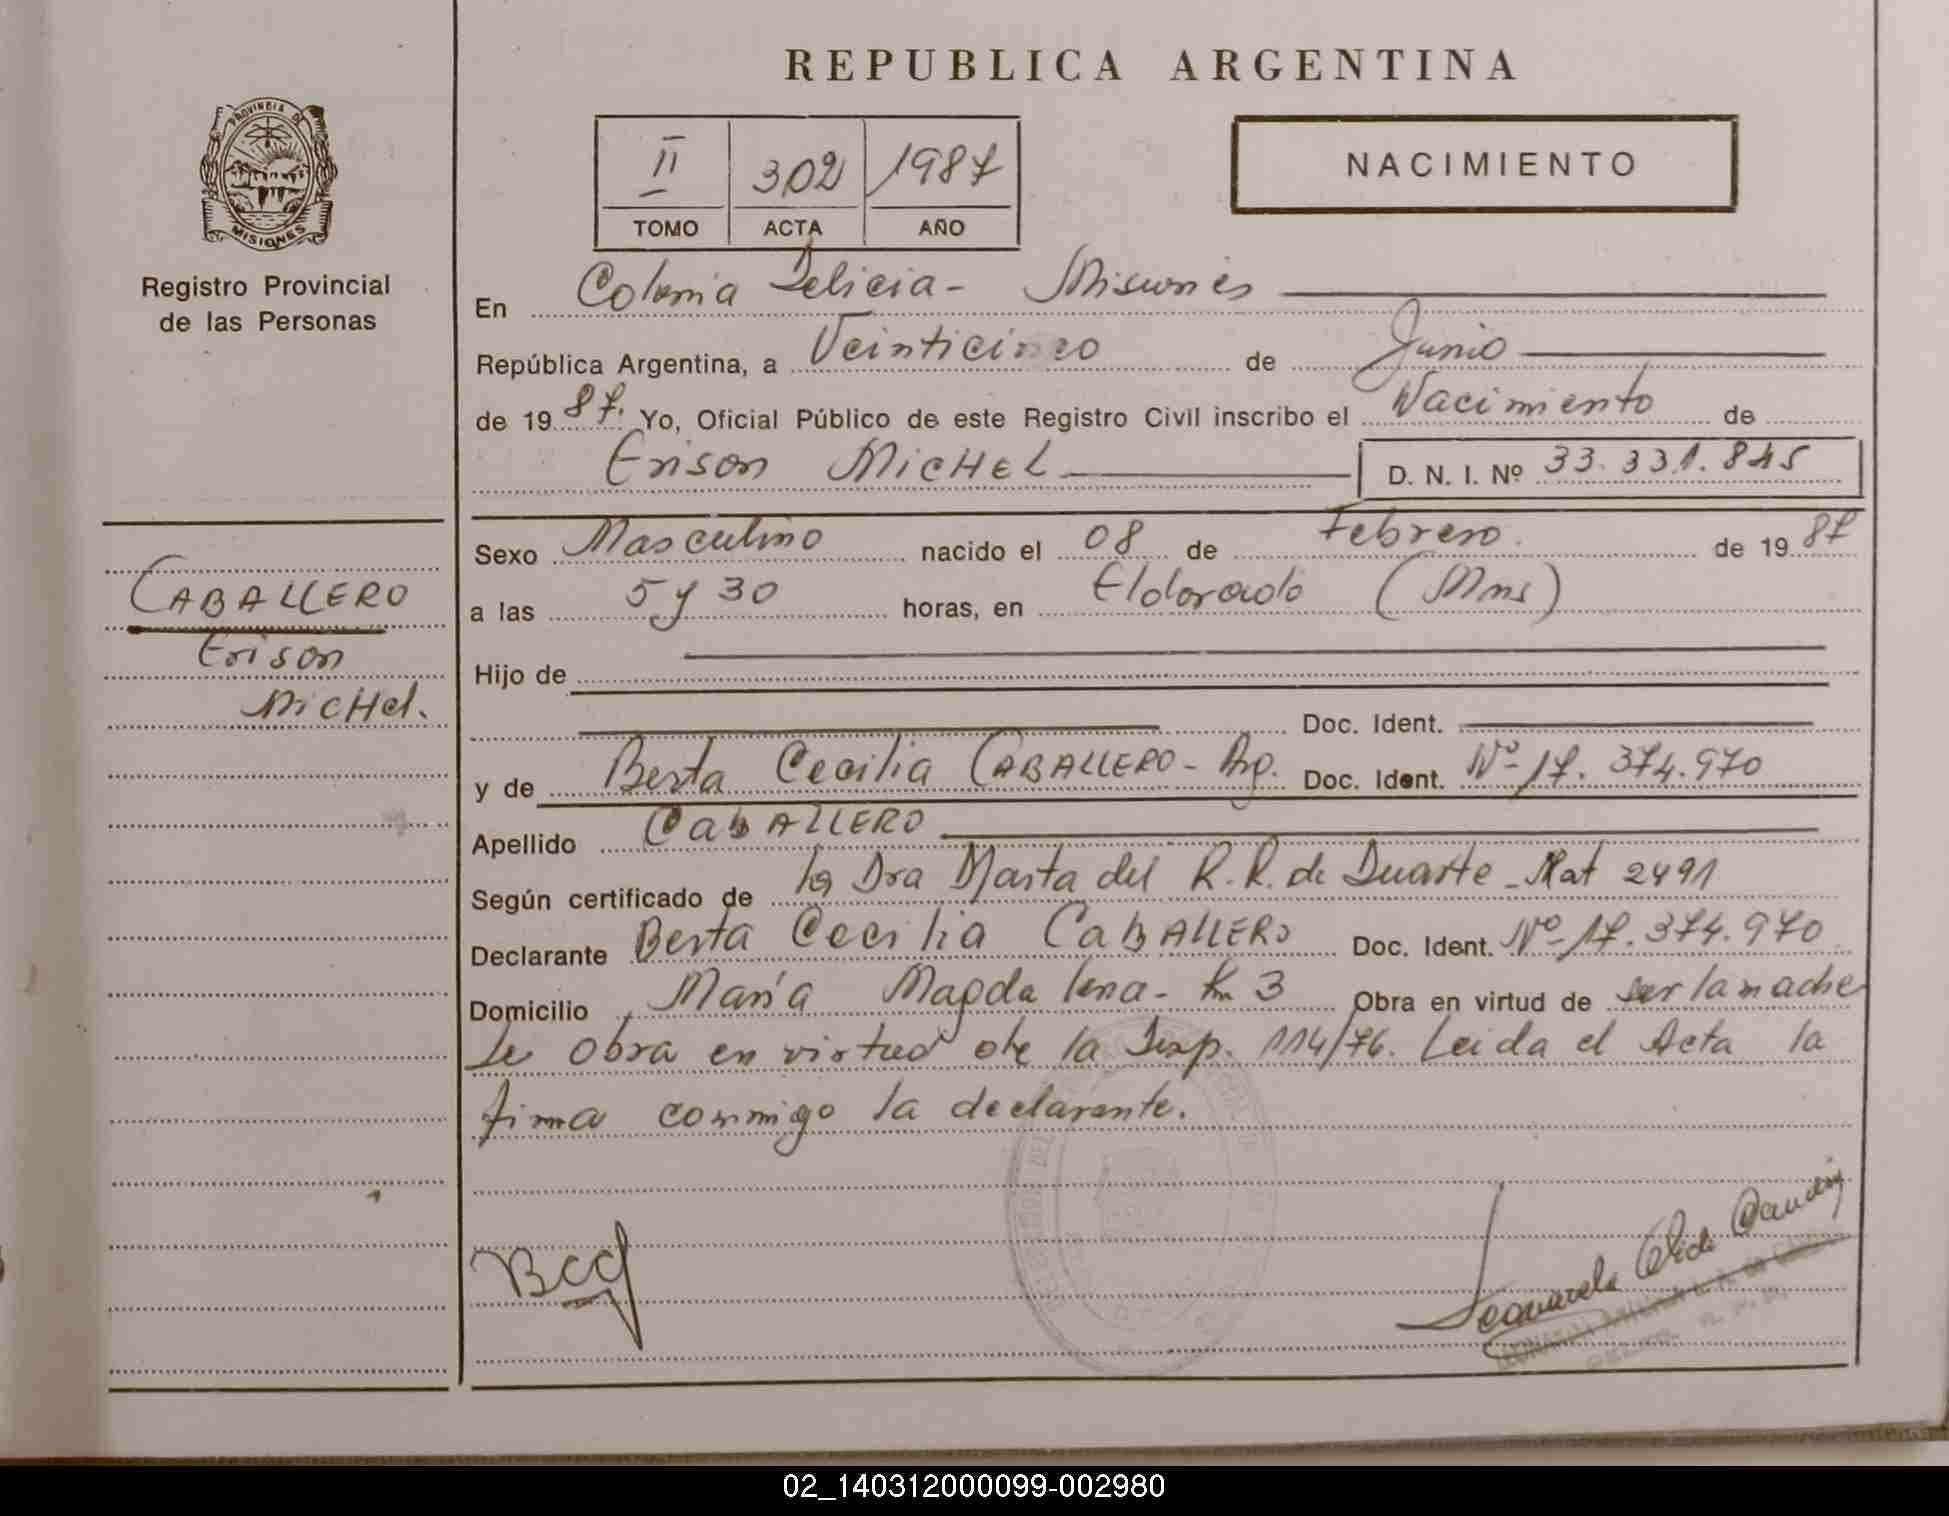 REPUBLICA ARGENTINA
PROVINCIA DE
MISIONES
Registro Provincial
de las Personas
II 302 1987
TOMO ACTA AÑO
NACIMIENTO
En Colonia Delicia - Misiones
República Argentina, a Veinticinco de Junio
de 19 87. Yo, Oficial Público de este Registro Civil inscribo el Nacimiento de
Erison MicHeL D. N. I. Nº 33.331.845
Sexo Masculino nacido el 08 de Febrero. de 19 87
a las 5 y 30 horas, en Eldorado (Mns)
CABALLERO
Erison
MicHel.
Hijo de
Doc. Ident.
y de Berta Cecilia CABALLERO - Arg. Doc. Ident. Nº 17.374.970
Apellido CabALLERO
Según certificado de la Dra Marta del R.R. de Duarte - Mat 2491
Declarante Berta Cecilia CabALLERO Doc. Ident. Nº 17.374.970
Domicilio María Magdalena - Km 3 Obra en virtud de ser la madre
Se obra en virtud de la Disp. 114/76. Leida el Acta la
firma conmigo la declarante.
BCC
02_140312000099-002980